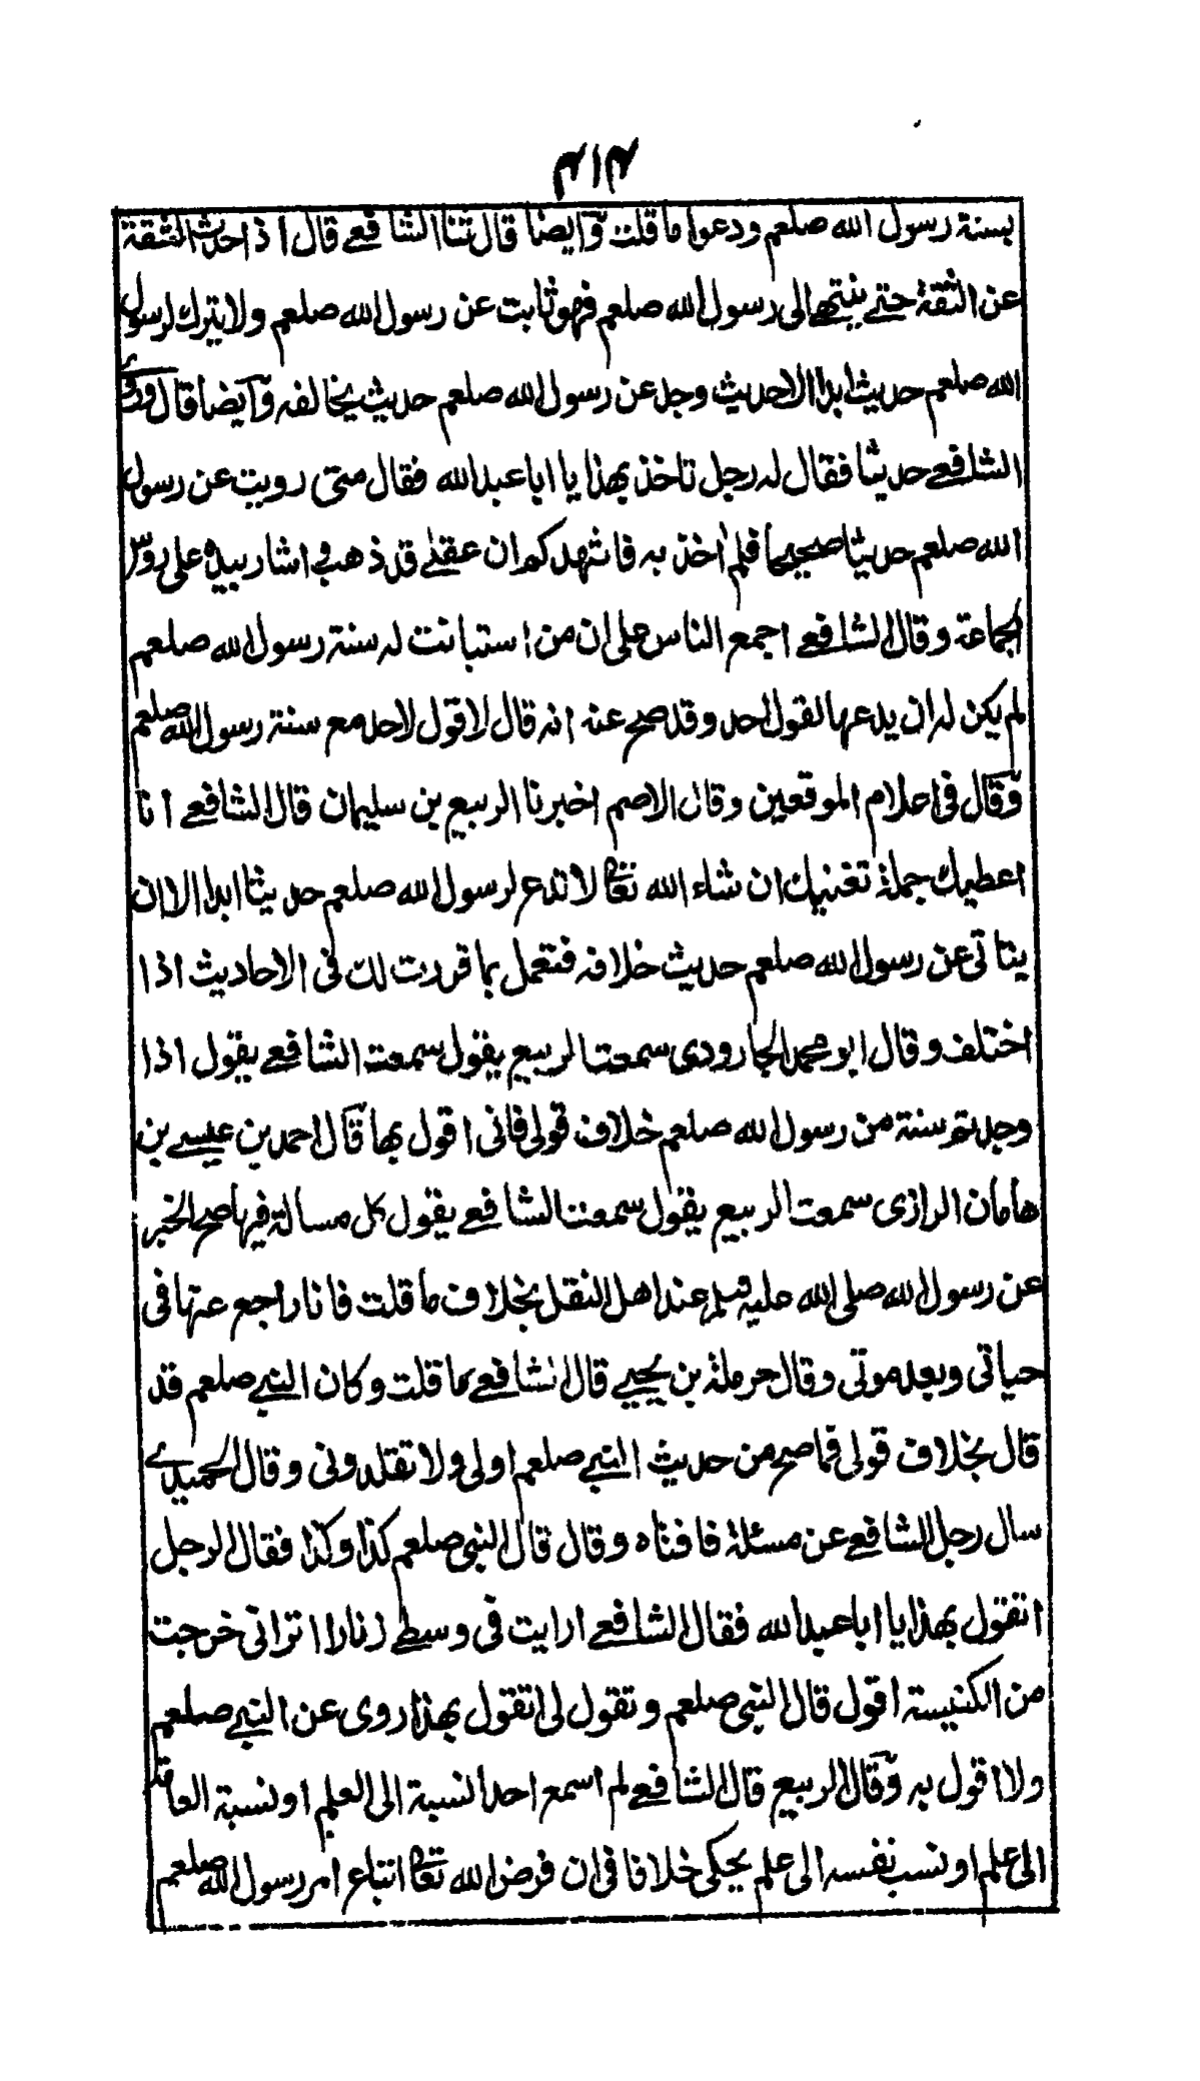 ۴۱۴
بسنة رسول الله صلعم ودعوا ما قلت وآيضا قال ثنا الشافعے قال اذا حدث الثقة
عن الثقة حتے ينتهے الى رسول الله صلعم فهو ثابت عن رسول الله صلعم ولا يترك لرسول
الله صلعم حديث ابدا الا حديث وجل عن رسول الله صلعم حديث يخالفه وآيضا قال وروى
الشافعے حديثا فقال له رجل تاخذ بهذا يا ابا عبد الله فقال متى رويت عن رسول
الله صلعم حديثا صحيحا فلم اخذ به فاشهدكم ان عقلے قد ذهب و اشار بيده على روس
الجماعة وقال الشافعے اجمع الناس على ان من استبانت له سنة رسول الله صلعم
لم يكن له ان يدعها لقول احد وقد صح عنه انه قال لا قول لاحد مع سنة رسول الله صلعم
وقال فى اعلام الموقعين وقال الاصم اخبرنا الربيع بن سليمان قال الشافعے انا
اعطيك جملة تغنيك ان شاء الله تعالى لا تدع لرسول الله صلعم حديثا ابدا الا ان
يتاتى عن رسول الله صلعم حديث خلافه فتعمل بما قررت لك فى الاحاديث اذا
اختلف وقال ابو محمد الجارودى سمعت الربيع يقول سمعت الشافعے يقول اذا
وجدتم سنة من رسول الله صلعم خلاف قولى فانى اقول بها قال احمد بن عيسے بن
هامان الرازى سمعت الربيع يقول سمعت الشافعے يقول كل مسالة فيها صح الخبر
عن رسول الله صلى الله عليه وسلم عند اهل النقل بخلاف ما قلت فانا راجع عنها فى
حياتى وبعد موتى وقال حرملة بن يحيے قال الشافعے كما قلت وكان النبے صلعم قد
قال بخلاف قولى فما صح من حديث النبے صلعم اولى ولا تقلدونى وقال الحميدے
سال رجل الشافعے عن مسئلة فافتاه وقال قال النبى صلعم كذا وكذا فقال الرجل
اتقول بهذا يا ابا عبد الله فقال الشافعے ارايت فى وسطے زنارا اترانى خرجت
من الكنيسة اقول قال النبى صلعم وتقول لى اتقول بهذا روى عن النبے صلعم
ولا اقول به وقال الربيع قال الشافعے لم اسمع احدا نسبة الى العلم او نسبة العامة
الى علم او نسب نفسه الى علم يحكى خلافا فى ان فرض الله تعالى اتباع امر رسول الله صلعم